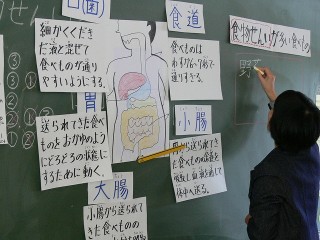 口歯
細かくくだき
だ液と混ぜて
食べものが通り
やすいようにする。
食道
食べものは
通りすぎる。
胃
送られてきた食べ
ものをおかゆのよう
にどろどろの状態に
するために働く。
小腸
胃から送られて
きた食べものの養分を
吸収し血液を通して
体中へ送る。
大腸
小腸から送られて
きた食べものの
食物せんいが多い食べもの
野